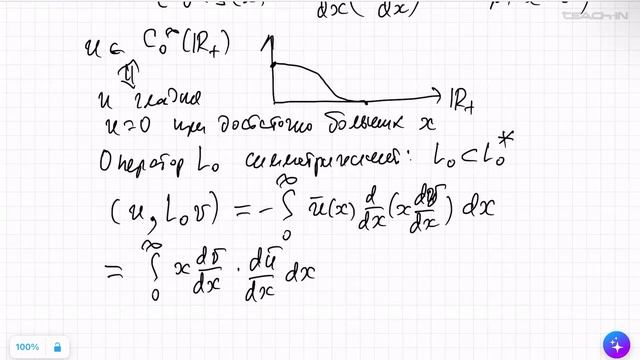 TEACH-IN
u ∈ C₀^∞(ℝ₊)
⇕
u гладкая
ℝ₊
u=0 при достаточно больших x
Оператор L₀ симметрический: L₀ ⊂ L₀*
(u, L₀v) = -∫₀^∞ ū(x) d/dx (x dv/dx) dx
= ∫₀^∞ x dv/dx · dū/dx dx
100%